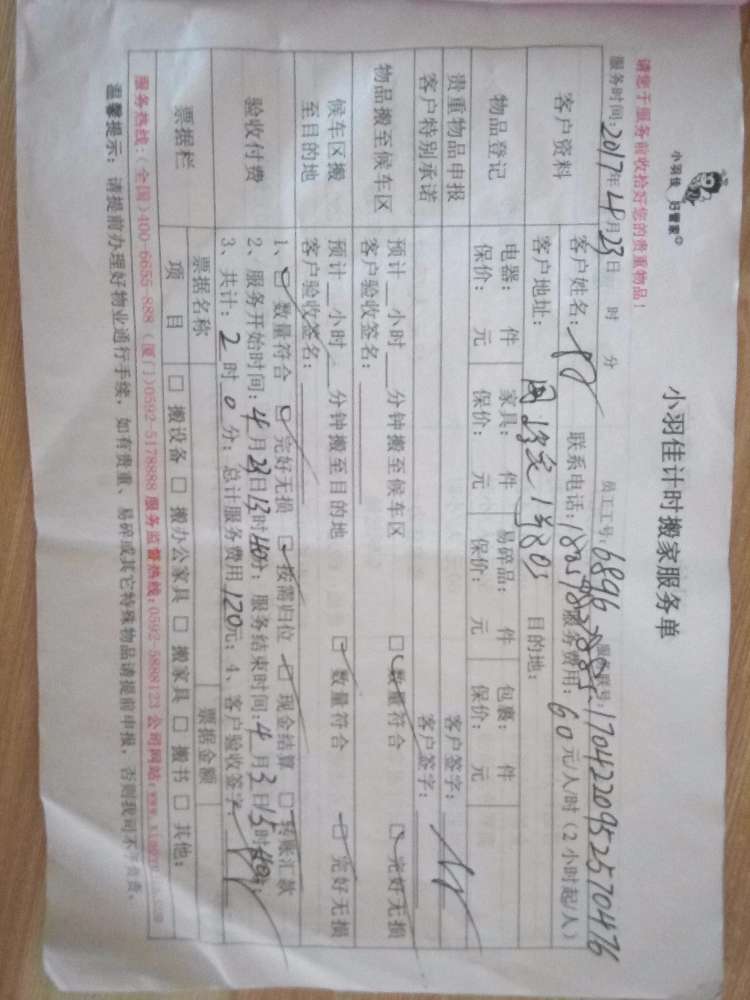 小羽佳 好管家
小羽佳计时搬家服务单
请您于服务前收拾好您的贵重物品！
员工工号：6896 服务联号：1704220952570476
服务时间：2017年4月23日 时 分
客户资料 客户姓名： 联系电话： 服务费用：60元/人/时（2小时起/人）
客户地址： 目的地：
物品登记 电器： 件 家具： 件 易碎品： 件 包裹： 件
保价： 元 保价： 元 保价： 元 保价： 元
贵重物品申报 客户签字：
客户特别承诺 客户签字：
物品搬至候车区 预计 小时 分钟搬至候车区 □数量符合 □完好无损
客户验收签名：
候车区搬至目的地 预计 小时 分钟搬至目的地 □数量符合 □完好无损
客户验收签名：
验收付费 1、□数量符合 □完好无损 □按需归位 □现金结算 □转账汇款
2、服务开始时间：4月23日13时40分；服务结束时间：4月3日15时40分；
3、共计：2时0分；总计服务费用120元；4、客户验收签字：
票据栏 票据名称 票据金额
项目 □搬设备 □搬办公家具 □搬家具 □搬书 □其他：
服务热线：（全国）400-6655-888（厦门）0592-5178888 服务监督热线：0592-5888123 公司网站：
温馨提示：请提前办理好物业通行手续，如有贵重、易碎或其它特殊物品请提前申报，否则我司不予负责。